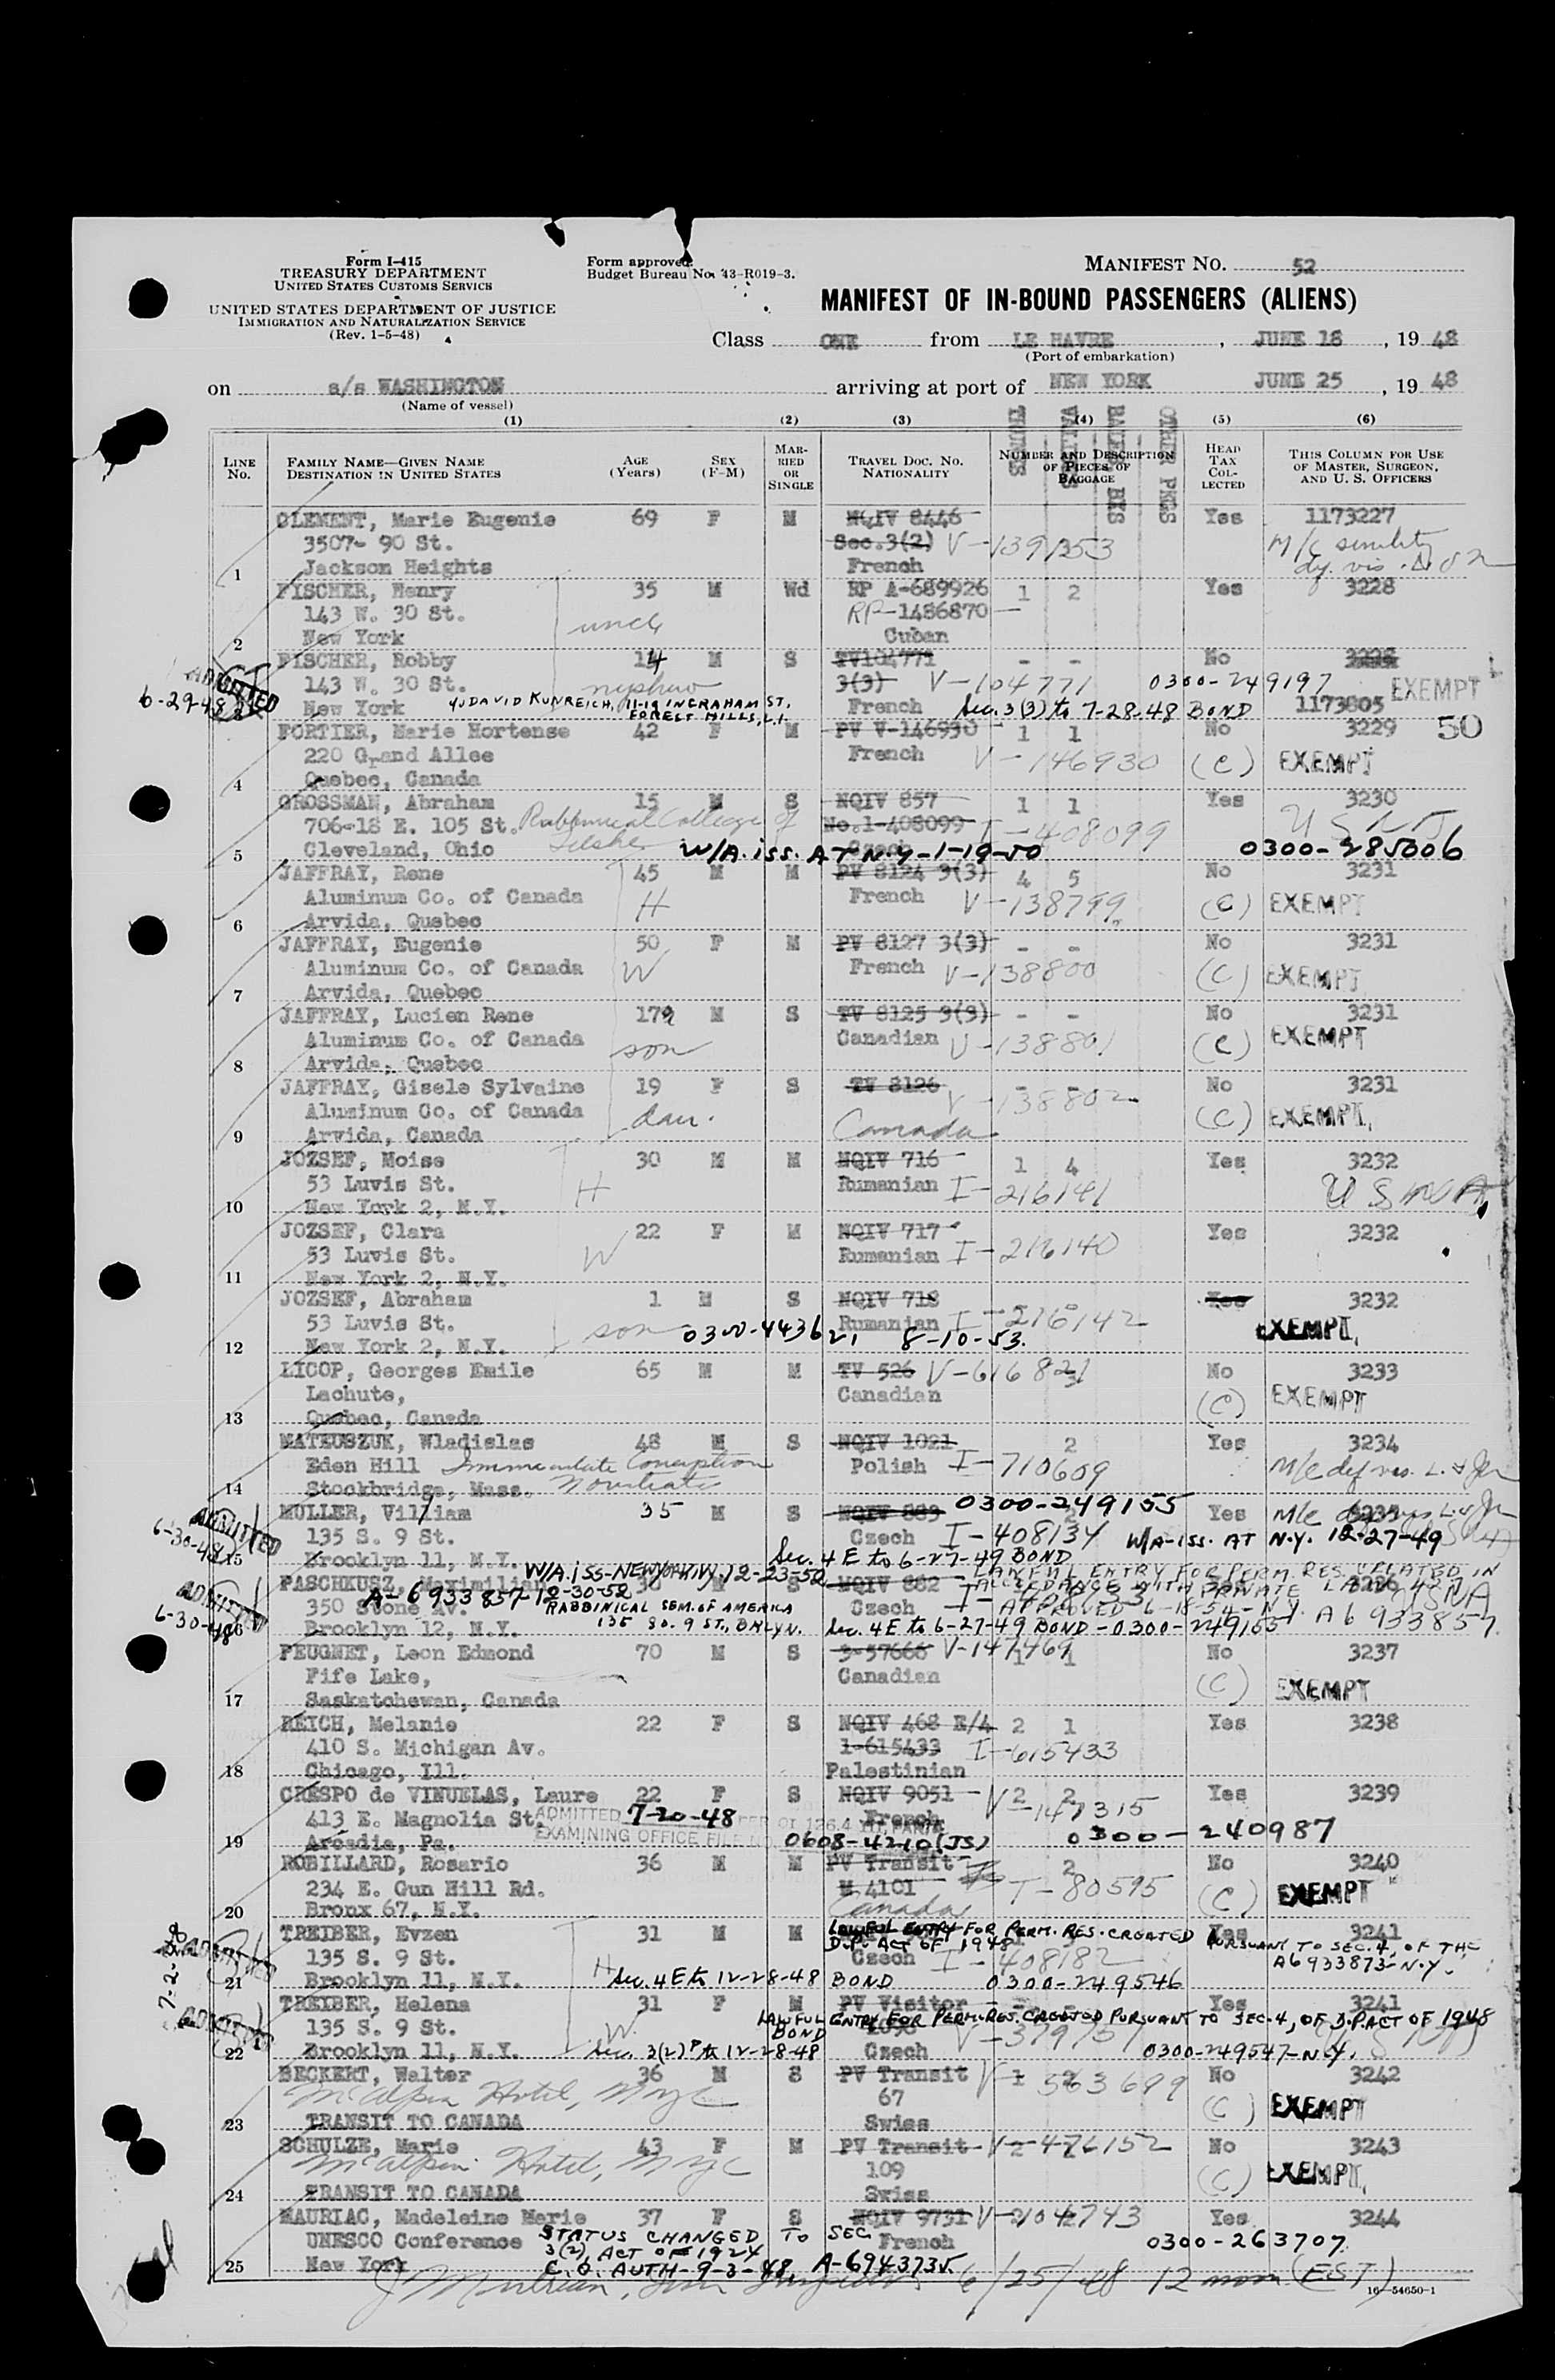 Form I-415
TREASURY DEPARTMENT
UNITED STATES CUSTOMS SERVICE
UNITED STATES DEPARTMENT OF JUSTICE
IMMIGRATION AND NATURALIZATION SERVICE
(Rev. 1-5-48)
Form approved.
Budget Bureau No. 43-R019-3.
MANIFEST NO. 52
MANIFEST OF IN-BOUND PASSENGERS (ALIENS)
Class ONE from LE HAVRE, JUNE 18, 19 48
(Port of embarkation)
on s/s WASHINGTON arriving at port of NEW YORK JUNE 25, 19 48
(Name of vessel)
(1) (2) (3) (4) (5) (6)
LINE NO. FAMILY NAME—GIVEN NAME DESTINATION IN UNITED STATES AGE (Years) SEX (F-M) MARRIED OR SINGLE TRAVEL DOC. NO. NATIONALITY NUMBER AND DESCRIPTION OF PIECES OF BAGGAGE HEAD TAX COLLECTED THIS COLUMN FOR USE OF MASTER, SURGEON, AND U. S. OFFICERS
TRUNKS VALISES OTHER PKGS
CLEMENT, Marie Eugenie 69 F M NQIV 8446 Yes 1173227
3507- 90 St. Sec.3(2) V-139153 M/C senility
1 Jackson Heights French
FISCHER, Henry 35 M Wd RP A-689926 1 2 Yes 3228
143 W. 30 St. uncle RP-1486870
2 New York Cuban
FISCHER, Robby 14 M S TV104771 - - No 3228
143 W. 30 St. nephew 3(3) V-104771 0300-249197 EXEMPT
ADMITTED 6-29-48
3 New York % DAVID KUNREICH, 11-19 INGRAHAM ST. FOREST HILLS, L.I. French Sec. 3(3) to 7-28-48 BOND 1173805
FORTIER, Marie Hortense 42 F M PV V-146930 1 1 No 3229 50
220 Grand Allee French V-146930 (C) EXEMPT
4 Quebec, Canada
GROSSMAN, Abraham 15 M S NQIV 857 1 1 Yes 3230
706-18 E. 105 St. Rabbinical College of No.1-408099 I-408099
5 Cleveland, Ohio Telshe Czech W/A. iss. AT N.Y-1-19-50 0300-285606
JAFFRAY, Rene 45 M M PV 8124 3(3) 4 5 No 3231
Aluminum Co. of Canada H French V-138799 (C) EXEMPT
6 Arvida, Quebec
JAFFRAY, Eugenie 50 F M PV 8127 3(3) - - No 3231
Aluminum Co. of Canada W French V-138800 (C) EXEMPT
7 Arvida, Quebec
JAFFRAY, Lucien Rene 17 M S TV 8125 3(3) - - No 3231
Aluminum Co. of Canada son Canadian V-138801 (C) EXEMPT
8 Arvida, Quebec
JAFFRAY, Gisele Sylvaine 19 F S TV 8126 - - No 3231
Aluminum Co. of Canada dau. V-138802 (C) EXEMPT
9 Arvida, Canada Canada
JOZSEF, Moise 30 M M NQIV 716 1 4 Yes 3232
53 Luvis St. H Rumanian I-216141 USNA
10 New York 2, N.Y.
JOZSEF, Clara 22 F M NQIV 717 Yes 3232
53 Luvis St. W Rumanian I-216140
11 New York 2, N.Y.
JOZSEF, Abraham 1 M S NQIV 718 - - Yes 3232
53 Luvis St. son Rumanian I-216142 EXEMPT
12 New York 2, N.Y. 0300-443621 8-10-53.
LICOP, Georges Emile 65 M M TV 526 V-616821 No 3233
Lachute, Canadian (C) EXEMPT
13 Quebec, Canada
MATEUSZUK, Wladislas 48 M S NQIV 1021 2 Yes 3234
Eden Hill Immaculate Conception Polish I-710609
14 Stockbridge, Mass. Novitiate
MULLER, William 35 M S NQIV 883 0300-249155 2 Yes 3235
135 S. 9 St. Czech I-408134 W/A-iss. AT N.Y. 12-27-49
ADMITTED 6-30-48
15 Brooklyn 11, N.Y. Sec. 4E to 6-27-49 BOND
W/A. iss-NEWYORK, N.Y. 12-23-52
PASCHKUSZ, Maximilian 30 M S NQIV 882 LAWFUL ENTRY FOR PERM. RES. CREATED IN
A-6933857-12-30-52 ACCORDANCE WITH PRIVATE LAW 427
350 Stone Av. RABBINICAL SEM. of AMERICA Czech APPROVED 6-18-54-N.Y. A6933857.
ADMITTED 6-30-48
16 Brooklyn 12, N.Y. 135 SO. 9 ST., BKLYN. Sec. 4E to 6-27-49 BOND-0300-249165
PEUGNET, Leon Edmond 70 M S 3-57666 V-147469 1 1 No 3237
Fife Lake, Canadian (C) EXEMPT
17 Saskatchewan, Canada
REICH, Melanie 22 F S NQIV 468 E/4 2 1 Yes 3238
410 S. Michigan Av. 1-615433 I-615433
18 Chicago, Ill. Palestinian
CRESPO de VINUELAS, Laure 22 F S NQIV 9051 2 2 Yes 3239
413 E. Magnolia St. ADMITTED 7-20-48 French V-147315
19 Arcadia, Pa. EXAMINING OFFICE FILE NO. 0608-4210(JS) 0300-240987
ROBILLARD, Rosario 36 M M PV Transit 2 No 3240
234 E. Gun Hill Rd. M 4101 T-80595 (C) EXEMPT
20 Bronx 67, N.Y. Canada
TREIBER, Evzen 31 M M LAWFUL ENTRY FOR PERM. RES. CREATED Yes 3241
PURSUANT TO SEC. 4, OF THE D.P. ACT OF 1948
135 S. 9 St. H Czech I-408182 A6933873-N.Y.
7-2-48
21 Brooklyn 11, N.Y. Sec. 4E to 12-28-48 BOND 0300-249546
TREIBER, Helena 31 F M PV Visitor Yes 3241
135 S. 9 St. W LAWFUL ENTRY FOR PERM. RES. CREATED PURSUANT TO SEC. 4, OF D.P. ACT OF 1948
22 Brooklyn 11, N.Y. Sec. 3(2) to 12-28-48 BOND Czech 0300-249547-N.Y.
BECKERT, Walter 36 M S PV Transit V-563699 No 3242
McAlpin Hotel, NYC 67 (C) EXEMPT
23 TRANSIT TO CANADA Swiss
SCHULZE, Marie 43 F M PV Transit V-476152 No 3243
McAlpin Hotel, NYC 109 (C) EXEMPT
24 TRANSIT TO CANADA Swiss
MAURIAC, Madeleine Marie 37 F S NQIV 9731 V-104743 Yes 3244
UNESCO Conference STATUS CHANGED TO SEC. French 0300-263707.
3(2), ACT OF 1924
25 New York C.O. AUTH-9-3-48, A-6943735.
6/25/48 12 noon (EST)
16—54650-1